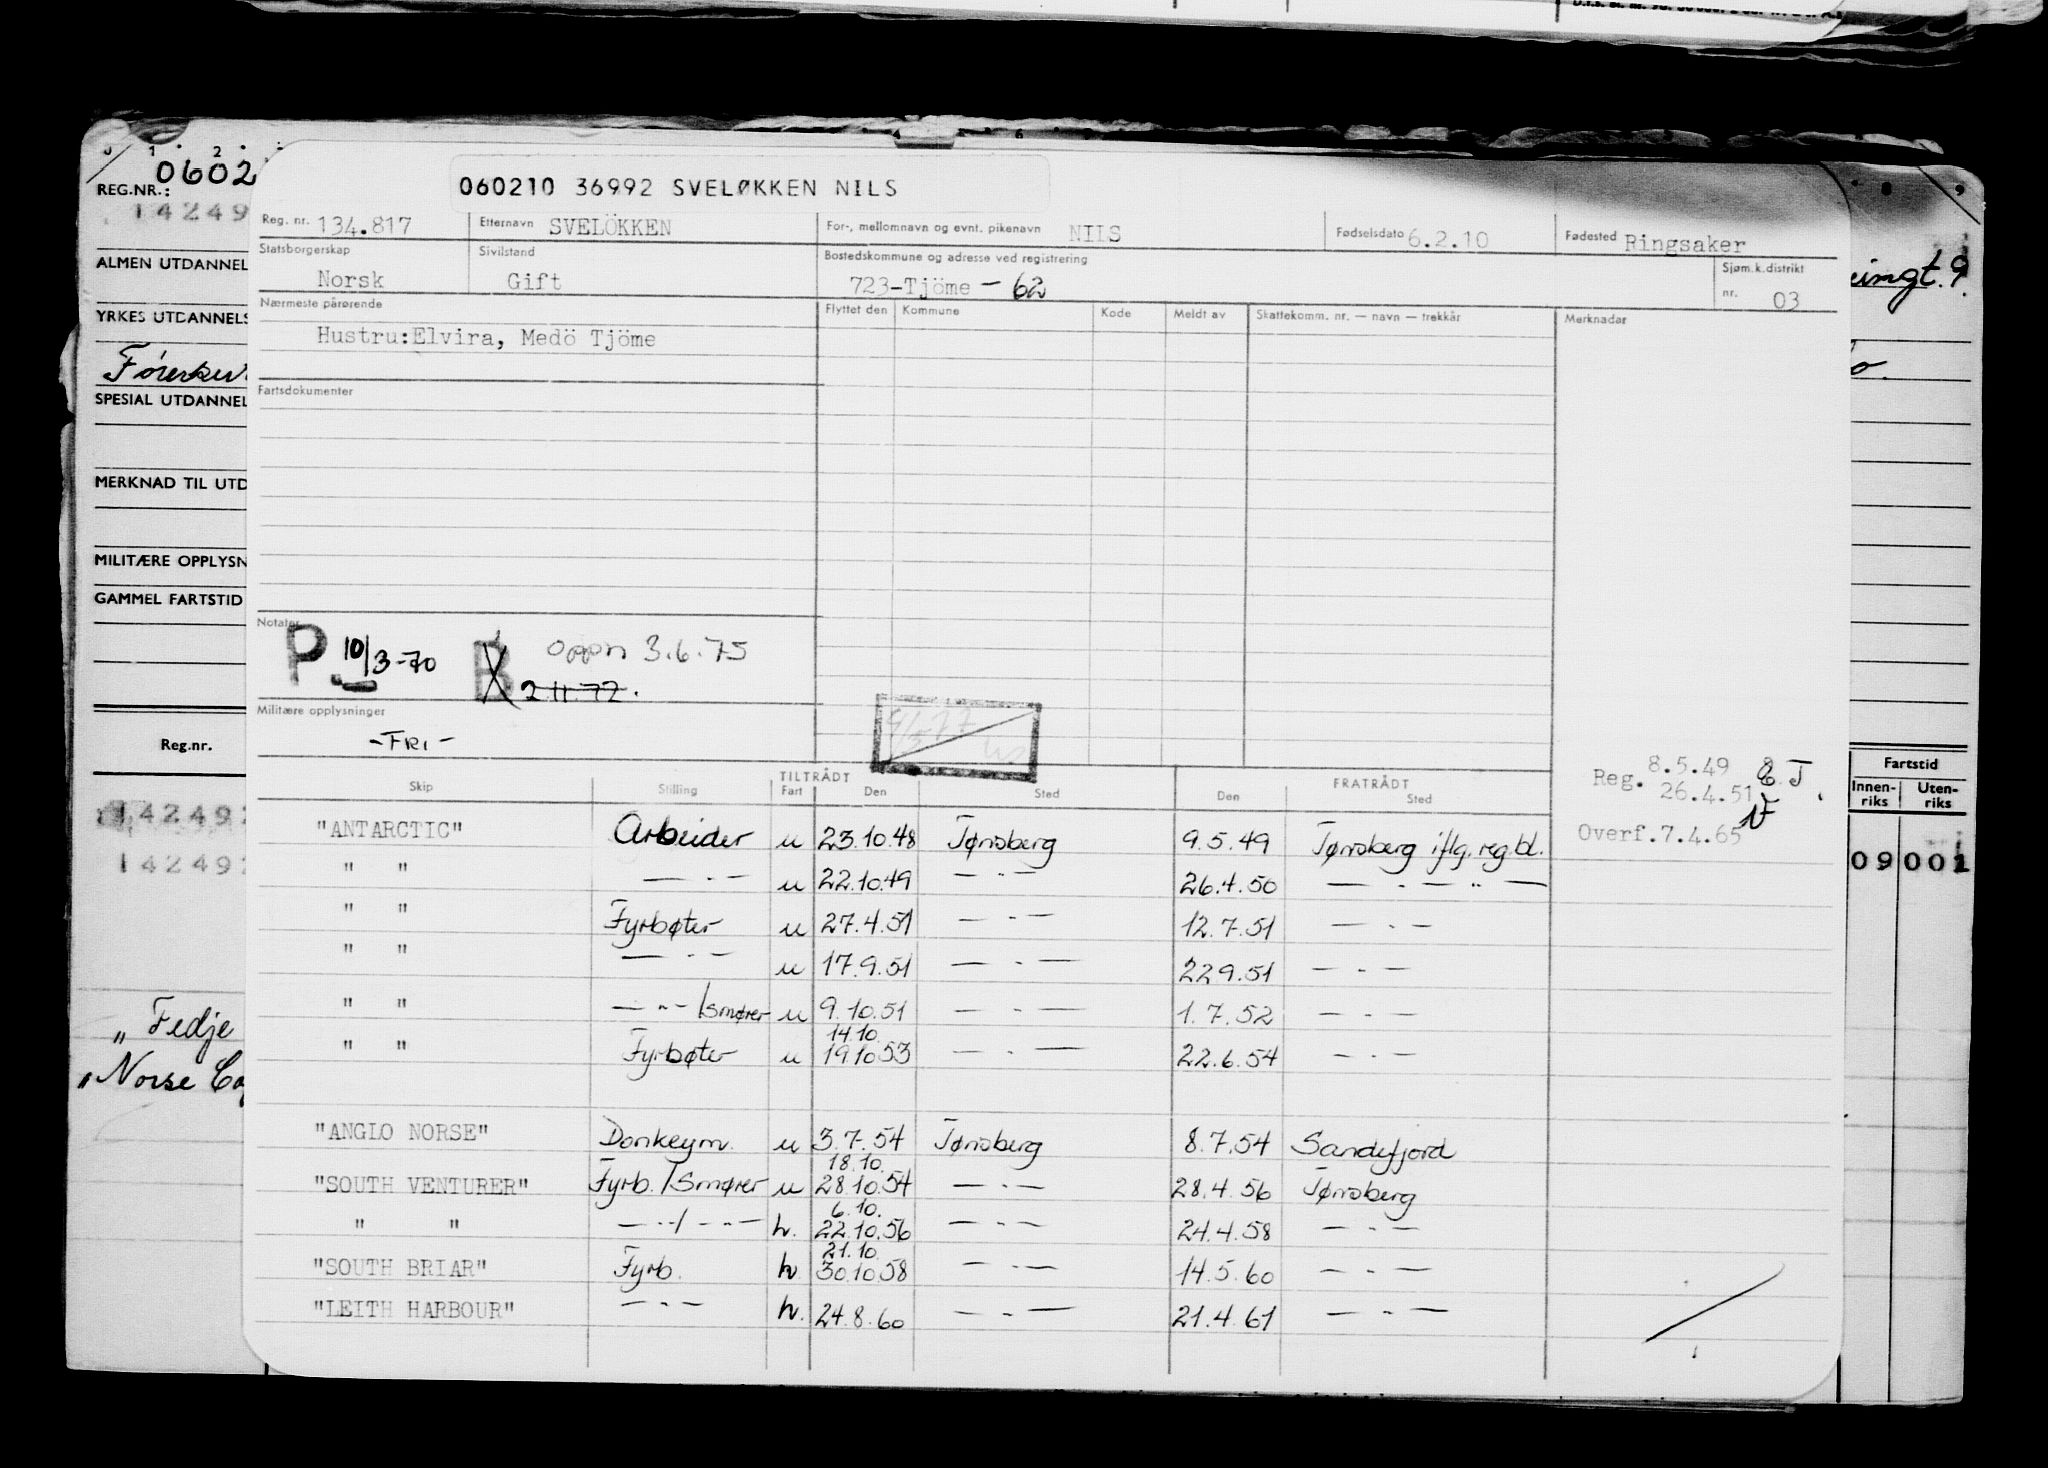 0602
REG.NR.:
14249
ALMEN UTDANNEL
YRKES UTDANNELS
SPESIAL UTDANNEL
MERKNAD TIL UTD
MILITÆRE OPPLYSN
GAMMEL FARTSTID
Reg.nr.
142492
142492
„ Fedje
„Norse Ca
060210 36992 SVELØKKEN NILS
Reg. nr. 134.817 Etternavn SVELÖKKEN For-, mellomnavn og evnt. pikenavn NILS Fødselsdato 6.2.10 Fødested Ringsaker
Statsborgerskap Norsk Sivilstand Gift Bostedskommune og adresse ved registrering 723-Tjöme - 62 Sjøm.k.distrikt nr. 03
Nærmeste pårørende Flyttet den Kommune Kode Meldt av Skattekomm. nr. — navn — trekkår Merknader
Hustru:Elvira, Medö Tjöme
Fartsdokumenter
Notater
P. 10/3-70 B oppn 3.6.75
2.11.72.
Militære opplysninger
-FRI-
Reg. 8.5.49
26.4.51
Overf.7.4.65
TILTRÅDT FRATRÅDT
Skip Stilling Fart Den Sted Den Sted
"ANTARCTIC" Arbeider u 23.10.48 Tønsberg 9.5.49 Tønsberg iflg. reg bl.
" " — " — u 22.10.49 — " — 26.4.50 — " — " —
" " Fyrbøter u 27.4.51 — " — 12.7.51 — " —
" " — " — u 17.9.51 — " — 22.9.51 — " —
" " — " — /smører u 9.10.51 — " — 1.7.52 — " —
14.10.
" " Fyrbøter u 19.10.53 — " — 22.6.54 — " —
"ANGLO NORSE" Donkeym. u 3.7.54 Tønsberg 8.7.54 Sandefjord
18.10.
"SOUTH VENTURER" Fyrb./Smører u 28.10.54 — " — 28.4.56 Tønsberg
6.10.
" " — " — / — " — h. 22.10.56 — " — 24.4.58 — " —
21.10.
"SOUTH BRIAR" Fyrb. h 30.10.58 — " — 14.5.60 — " —
"LEITH HARBOUR" — " — h. 24.8.60 — " — 21.4.61 — " —
Fartstid
Innen-riks Uten-riks
09 001